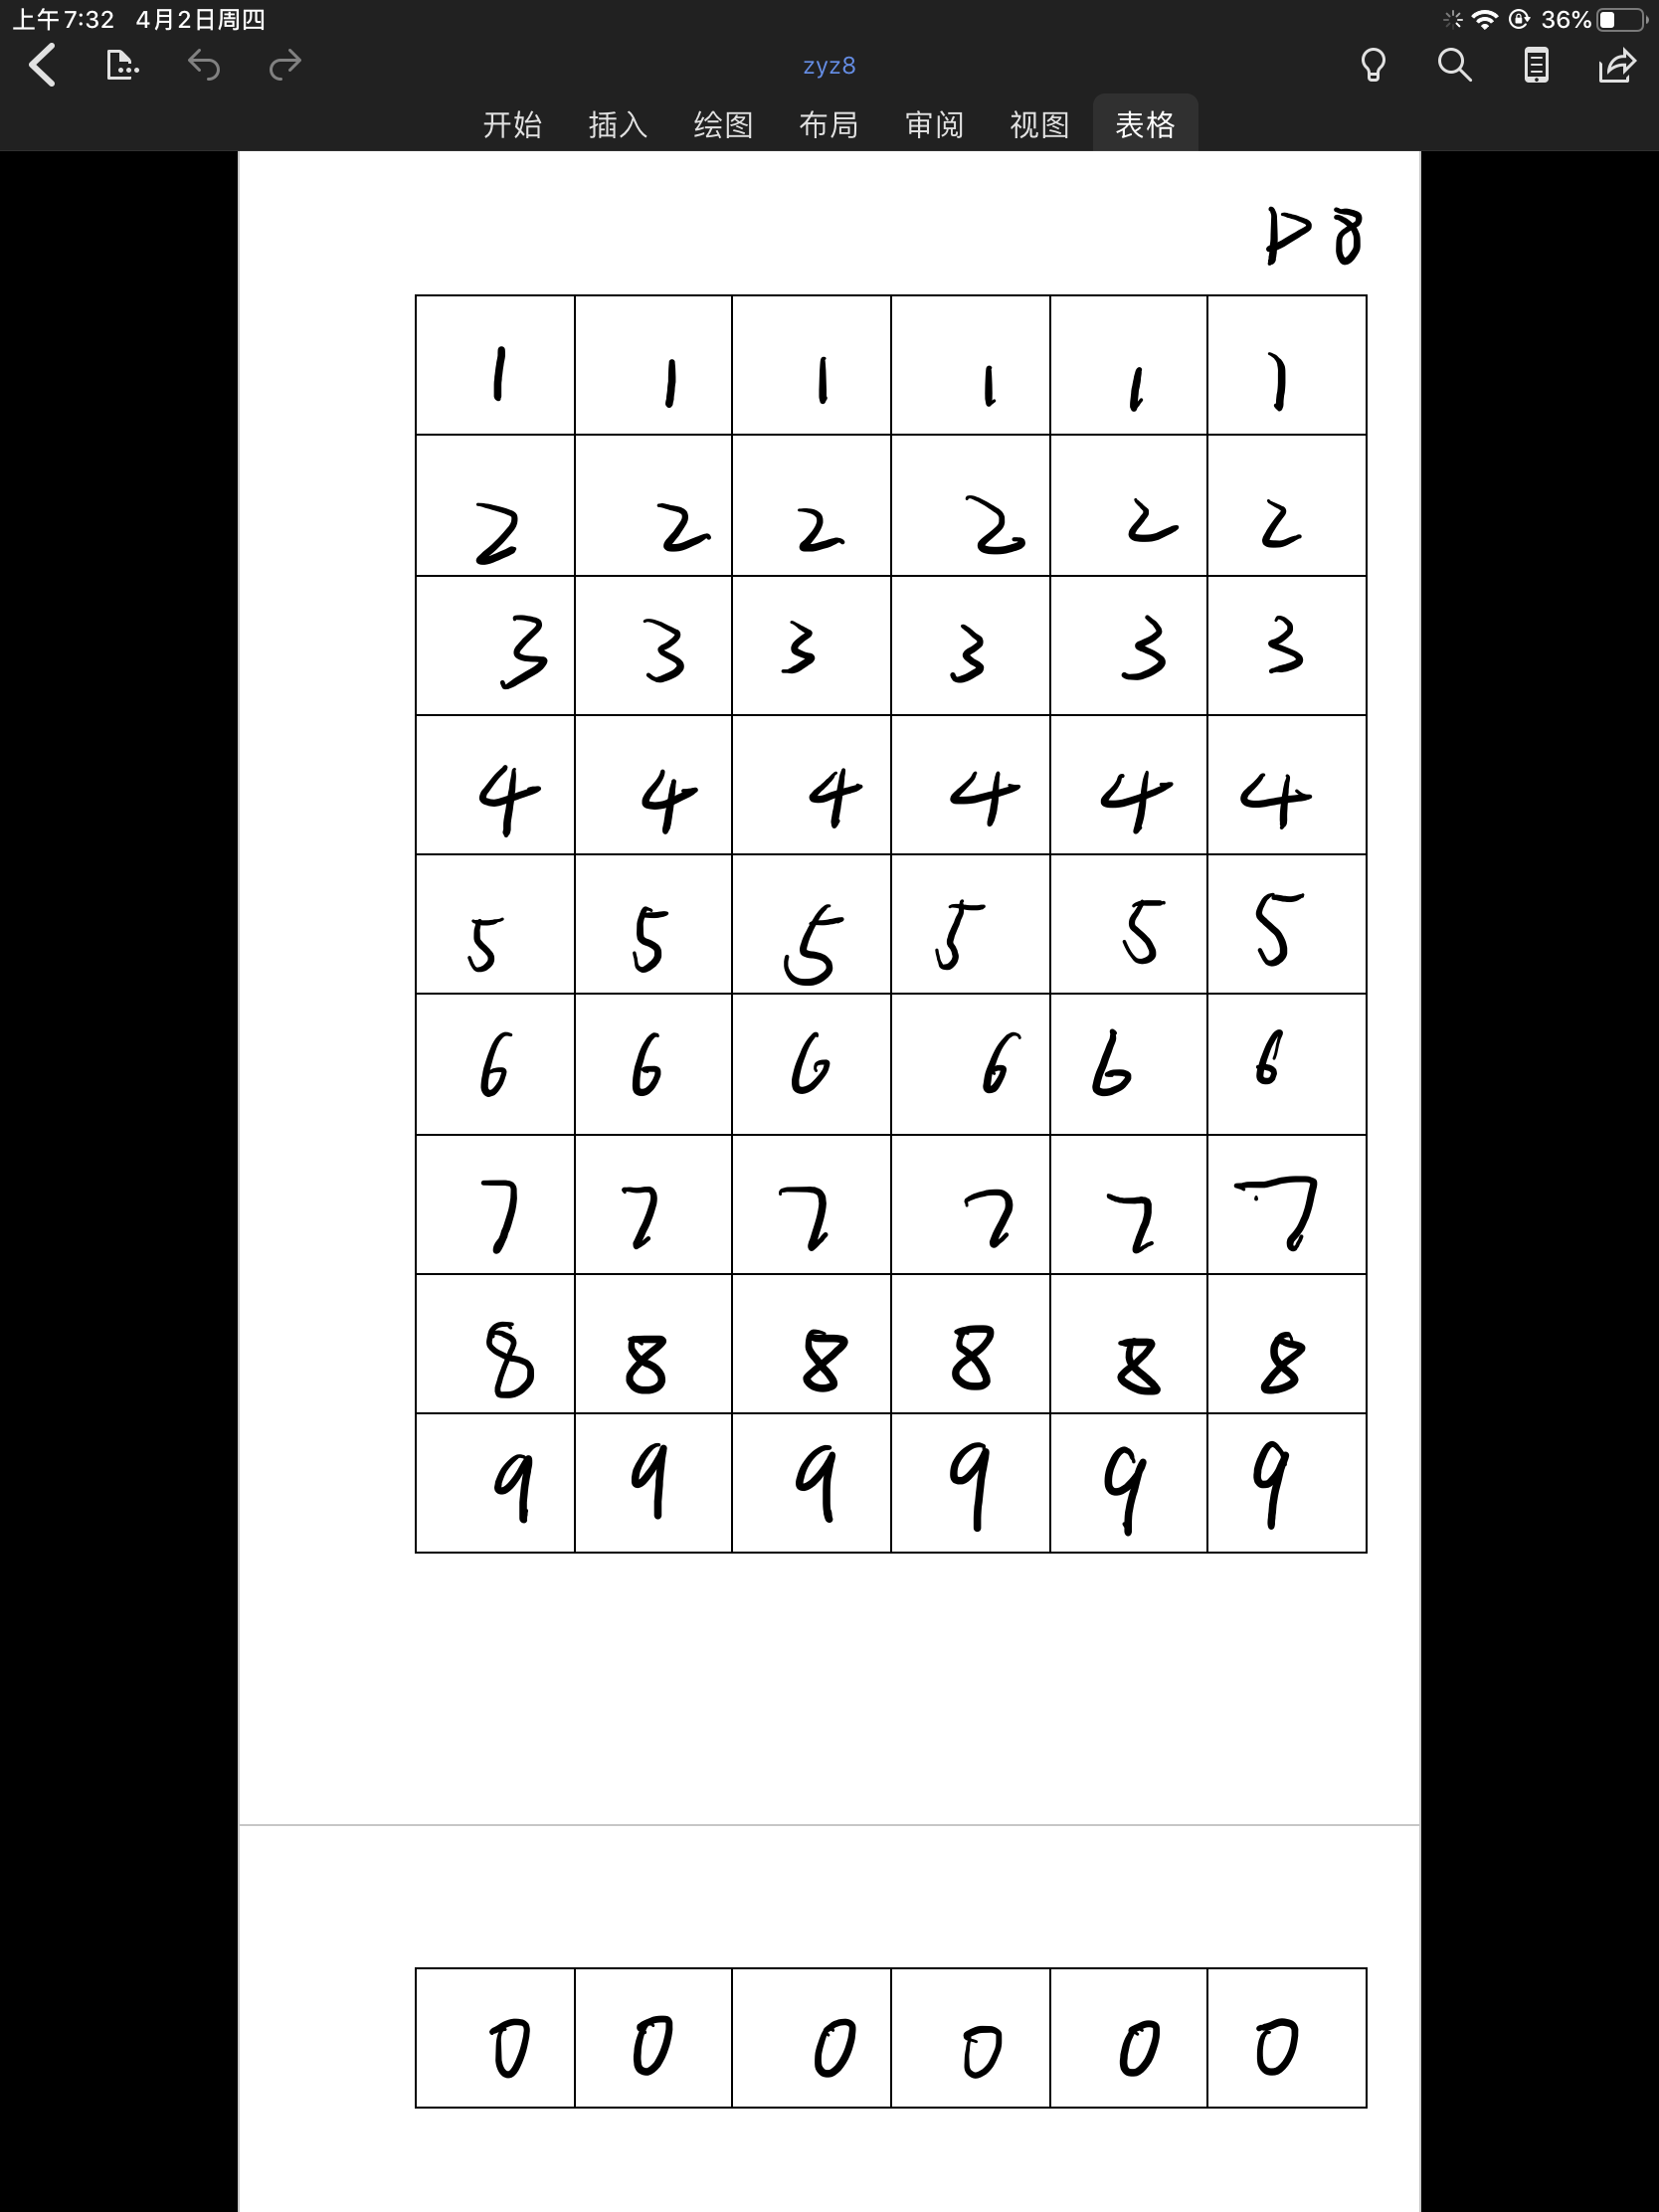 上午7:32 4月2日周四 36%
zyz8
开始 插入 绘图 布局 审阅 视图 表格
P8
1 1 1 1 1 1
2 2 2 2 2 2
3 3 3 3 3 3
4 4 4 4 4 4
5 5 5 5 5 5
6 6 6 6 6 6
7 7 7 7 7 7
8 8 8 8 8 8
9 9 9 9 9 9
0 0 0 0 0 0